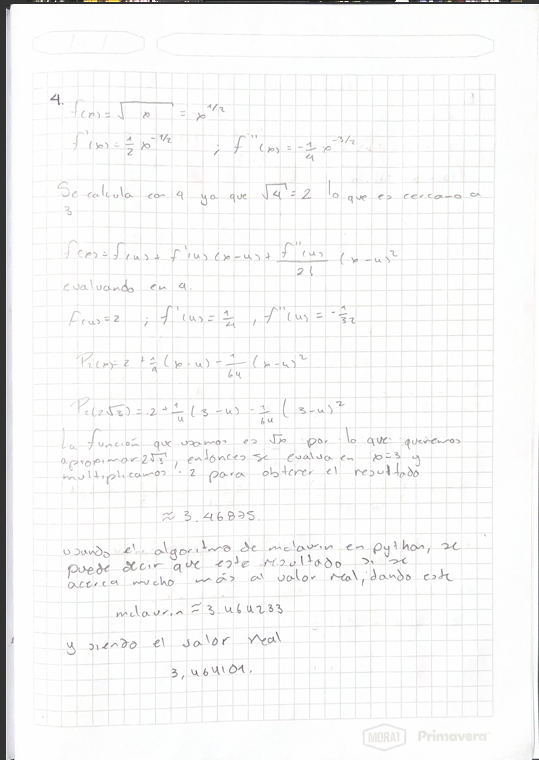 4.
f(x) = √x = x^1/2
f'(x) = 1/2 x^-1/2 ; f''(x) = -1/4 x^-3/2
Se calcula con 4 ya que √4 = 2 lo que es cercano a
3
f(x) = f(4) + f'(4) (x-4) + f''(4)/2! (x-4)²
evaluando en 4.
f(4) = 2 ; f'(4) = 1/4 , f''(4) = -1/32
P2(x) = 2 + 1/4 (x-4) - 1/64 (x-4)²
P2(2√3) = 2 + 1/4 (3-4) - 1/64 (3-4)²
La función que usamos es √x por lo que queremos
aproximar 2√3, entonces se evalua en x=3 y
multiplicamos · 2 para obtener el resultado
≈ 3.46875
usando el algoritmo de mclaurin en python, se
puede decir que este resultado si se
acerca mucho más al valor real, dando este
mclaurin ≈ 3.464233
y siendo el valor real
3,464101.
MORAT Primavera